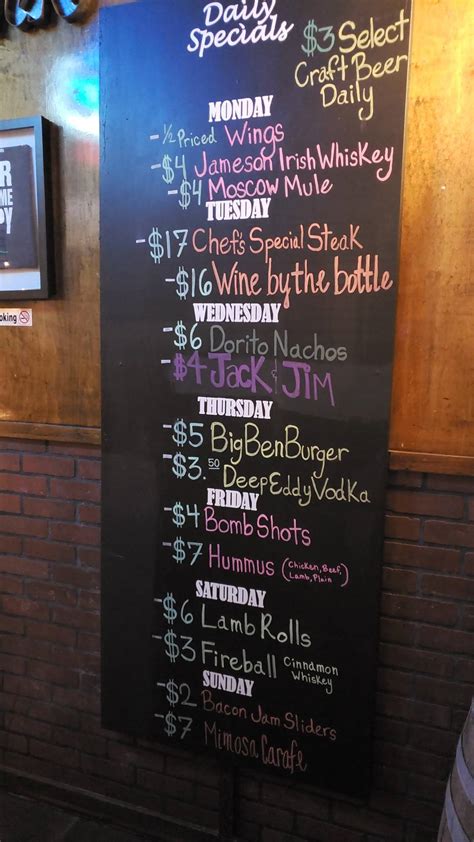 Daily
Specials
$3 Select
Craft Beer
Daily
MONDAY
-½ Priced Wings
-$4 Jameson Irish Whiskey
-$4 Moscow Mule
TUESDAY
-$17 Chef's Special Steak
-$16 Wine by the bottle
WEDNESDAY
-$6 Dorito Nachos
-$4 Jack & Jim
THURSDAY
-$5 Big Ben Burger
-$3.50 Deep Eddy Vodka
FRIDAY
-$4 Bomb Shots
-$7 Hummus (Chicken, Beef,
Lamb, Plain)
SATURDAY
-$6 Lamb Rolls
-$3 Fireball Cinnamon
Whiskey
SUNDAY
-$2 Bacon Jam Sliders
-$7 Mimosa Carafe